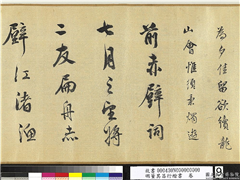 為夕佳留欲續龍
山會惟須秉燭遊
前赤壁詞
七月之望將
二友扁舟赤
壁江渚漁
明董其昌行楷書 卷
9